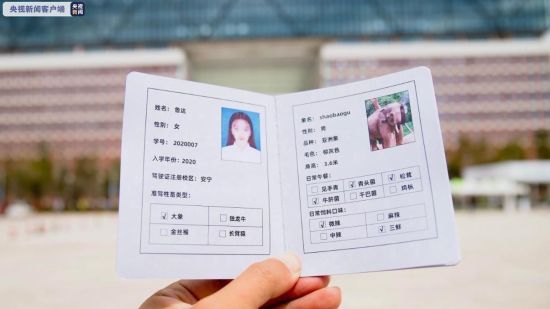 央视新闻客户端
央视新闻
姓名: 鲁达
性别: 女
学号: 2020007
入学年份: 2020
驾驶证注册校区: 安宁
准驾牲畜类型:
√ 大象
独龙牛
金丝猴
长臂猿
象名: shaobaogu
性别: 男
品种: 亚洲象
毛色: 棕灰色
肩高: 3.6米
日常午餐:
见手青
√ 青头菌
√ 松茸
√ 牛肝菌
干巴菌
鸡枞
日常饲料口味:
√ 微辣
麻辣
中辣
√ 三鲜